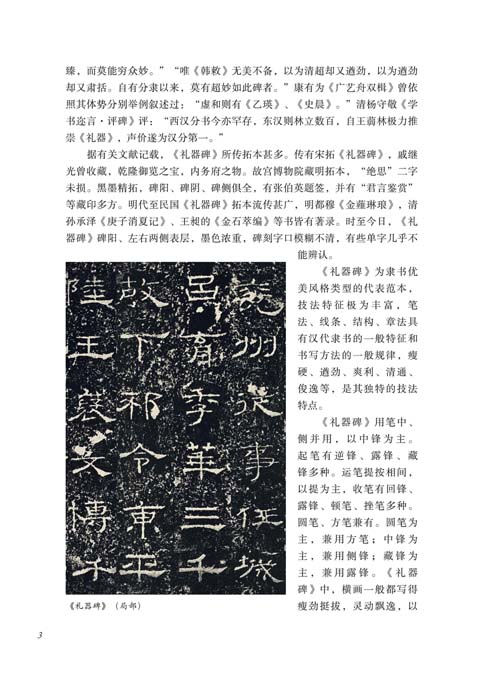 臻，而莫能穷众妙。”“唯《韩敕》无美不备，以为清超却又遒劲，以为遒劲
却又肃括。自有分隶以来，莫有超妙如此碑者。”康有为《广艺舟双楫》曾依
照其体势分别举例叙述过：“虚和则有《乙瑛》、《史晨》。”清杨守敬《学
书迩言·评碑》评：“西汉分书今亦罕存，东汉则林立数百，自王蒻林极力推
崇《礼器》，声价遂为汉分第一。”
据有关文献记载，《礼器碑》所传拓本甚多。传有宋拓《礼器碑》，戚继
光曾收藏，乾隆御览之宝，内务府之物。故宫博物院藏明拓本，“绝思”二字
未损。黑墨精拓，碑阳、碑阴、碑侧俱全，有张伯英题签，并有“君言鉴赏”
等藏印多方。明代至民国《礼器碑》拓本流传甚广，明都穆《金薤琳琅》，清
孙承泽《庚子消夏记》、王昶的《金石萃编》等书皆有著录。时至今日，《礼
器碑》碑阳、左右两侧表层，墨色浓重，碑刻字口模糊不清，有些单字几乎不
能辨认。
《礼器碑》为隶书优
美风格类型的代表范本，
技法特征极为丰富，笔
法、线条、结构、章法具
有汉代隶书的一般特征和
书写方法的一般规律，瘦
硬、遒劲、爽利、清通、
俊逸等，是其独特的技法
特点。
《礼器碑》用笔中、
侧并用，以中锋为主。
起笔有逆锋、露锋、藏
锋多种。运笔提按相间，
以提为主，收笔有回锋、
露锋、顿笔、挫笔多种。
圆笔、方笔兼有。圆笔为
主，兼用方笔；中锋为
主，兼用侧锋；藏锋为
主，兼用露锋。《礼器
碑》中，横画一般都写得
瘦劲挺拔，灵动飘逸，以
兖州从事任城
吕育季华三千
故下邳令东平
陆王褒文博千
《礼器碑》（局部）
3